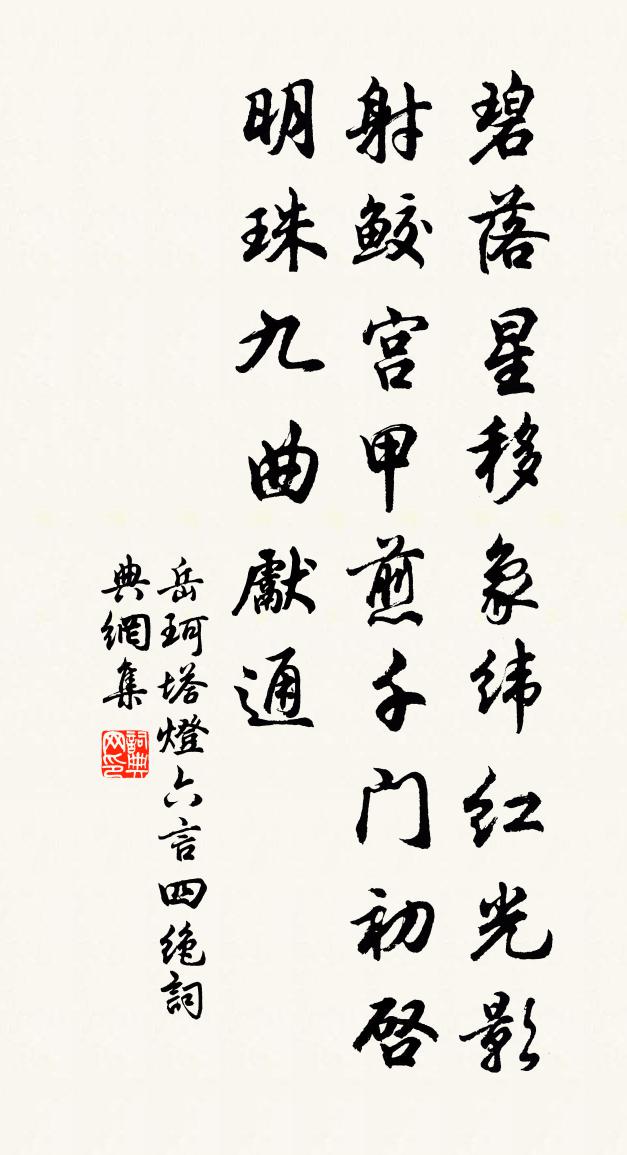 碧落星移象纬红光影
射鲛宫甲煎千门初啓
明珠九曲獻通
岳珂塔燈六言四绝詞
典網集
詞典
网印